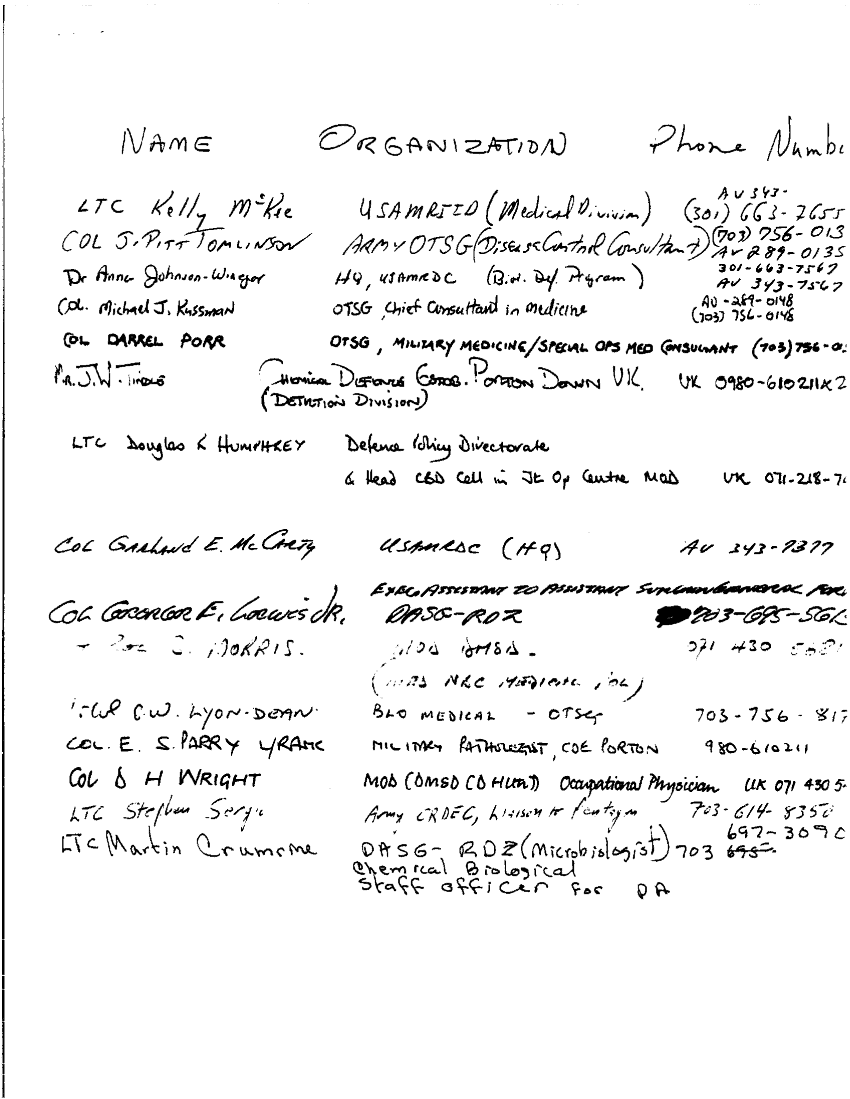 NAME ORGANIZATION Phone Numbe
AV 343-
LTC Kelly McKee USAMRIID (Medical Division) (301) 663-7655
COL J. PITT TOMLINSON ARMY OTSG (Disease Control Consultant) (703) 756-013
AV 289-0135
Dr Anna Johnson-Winegar HQ, USAMRDC (Biol. Def. Program) 301-663-7567
AV 343-7567
Col. Michael J. Kussman OTSG, Chief Consultant in Medicine AV-289-0148
(703) 756-0148
COL DARREL PORR OTSG, MILITARY MEDICINE/SPECIAL OPS MED CONSULTANT (703) 756-0
J.W. CHEMICAL DEFENCE ESTAB. PORTON DOWN UK. UK 0980-610211 x 2
(DETECTION DIVISION)
LTC Douglas K HUMPHREY Defence Policy Directorate
& Head CBD Cell in Jt Op Centre MOD UK 071-218-7
COL GARLAND E. McCARTY USAMRDC (HQ) AV 343-7377
EXEC. ASSISTANT TO ASSISTANT SURGEON GENERAL FOR
COL GEORGE E. JR. DASG-RDZ 703-695-
MORRIS. 071 430
C.W. LYON-DEAN BLO MEDICAL - OTSG 703-756-817
COL. E. S. PARRY L/RAMC MILITARY PATHOLOGIST, CDE PORTON 980-610211
COL D H WRIGHT MOD (DMSD CD HURT) Occupational Physician UK 071 430 5
LTC Stephen Army CRDEC, Liaison to Pentagon 703-614-8350
697-3090
LTC Martin Crumrine DASG-RDZ (Microbiologist) 703 695-
Chemical Biological
Staff officer for DA